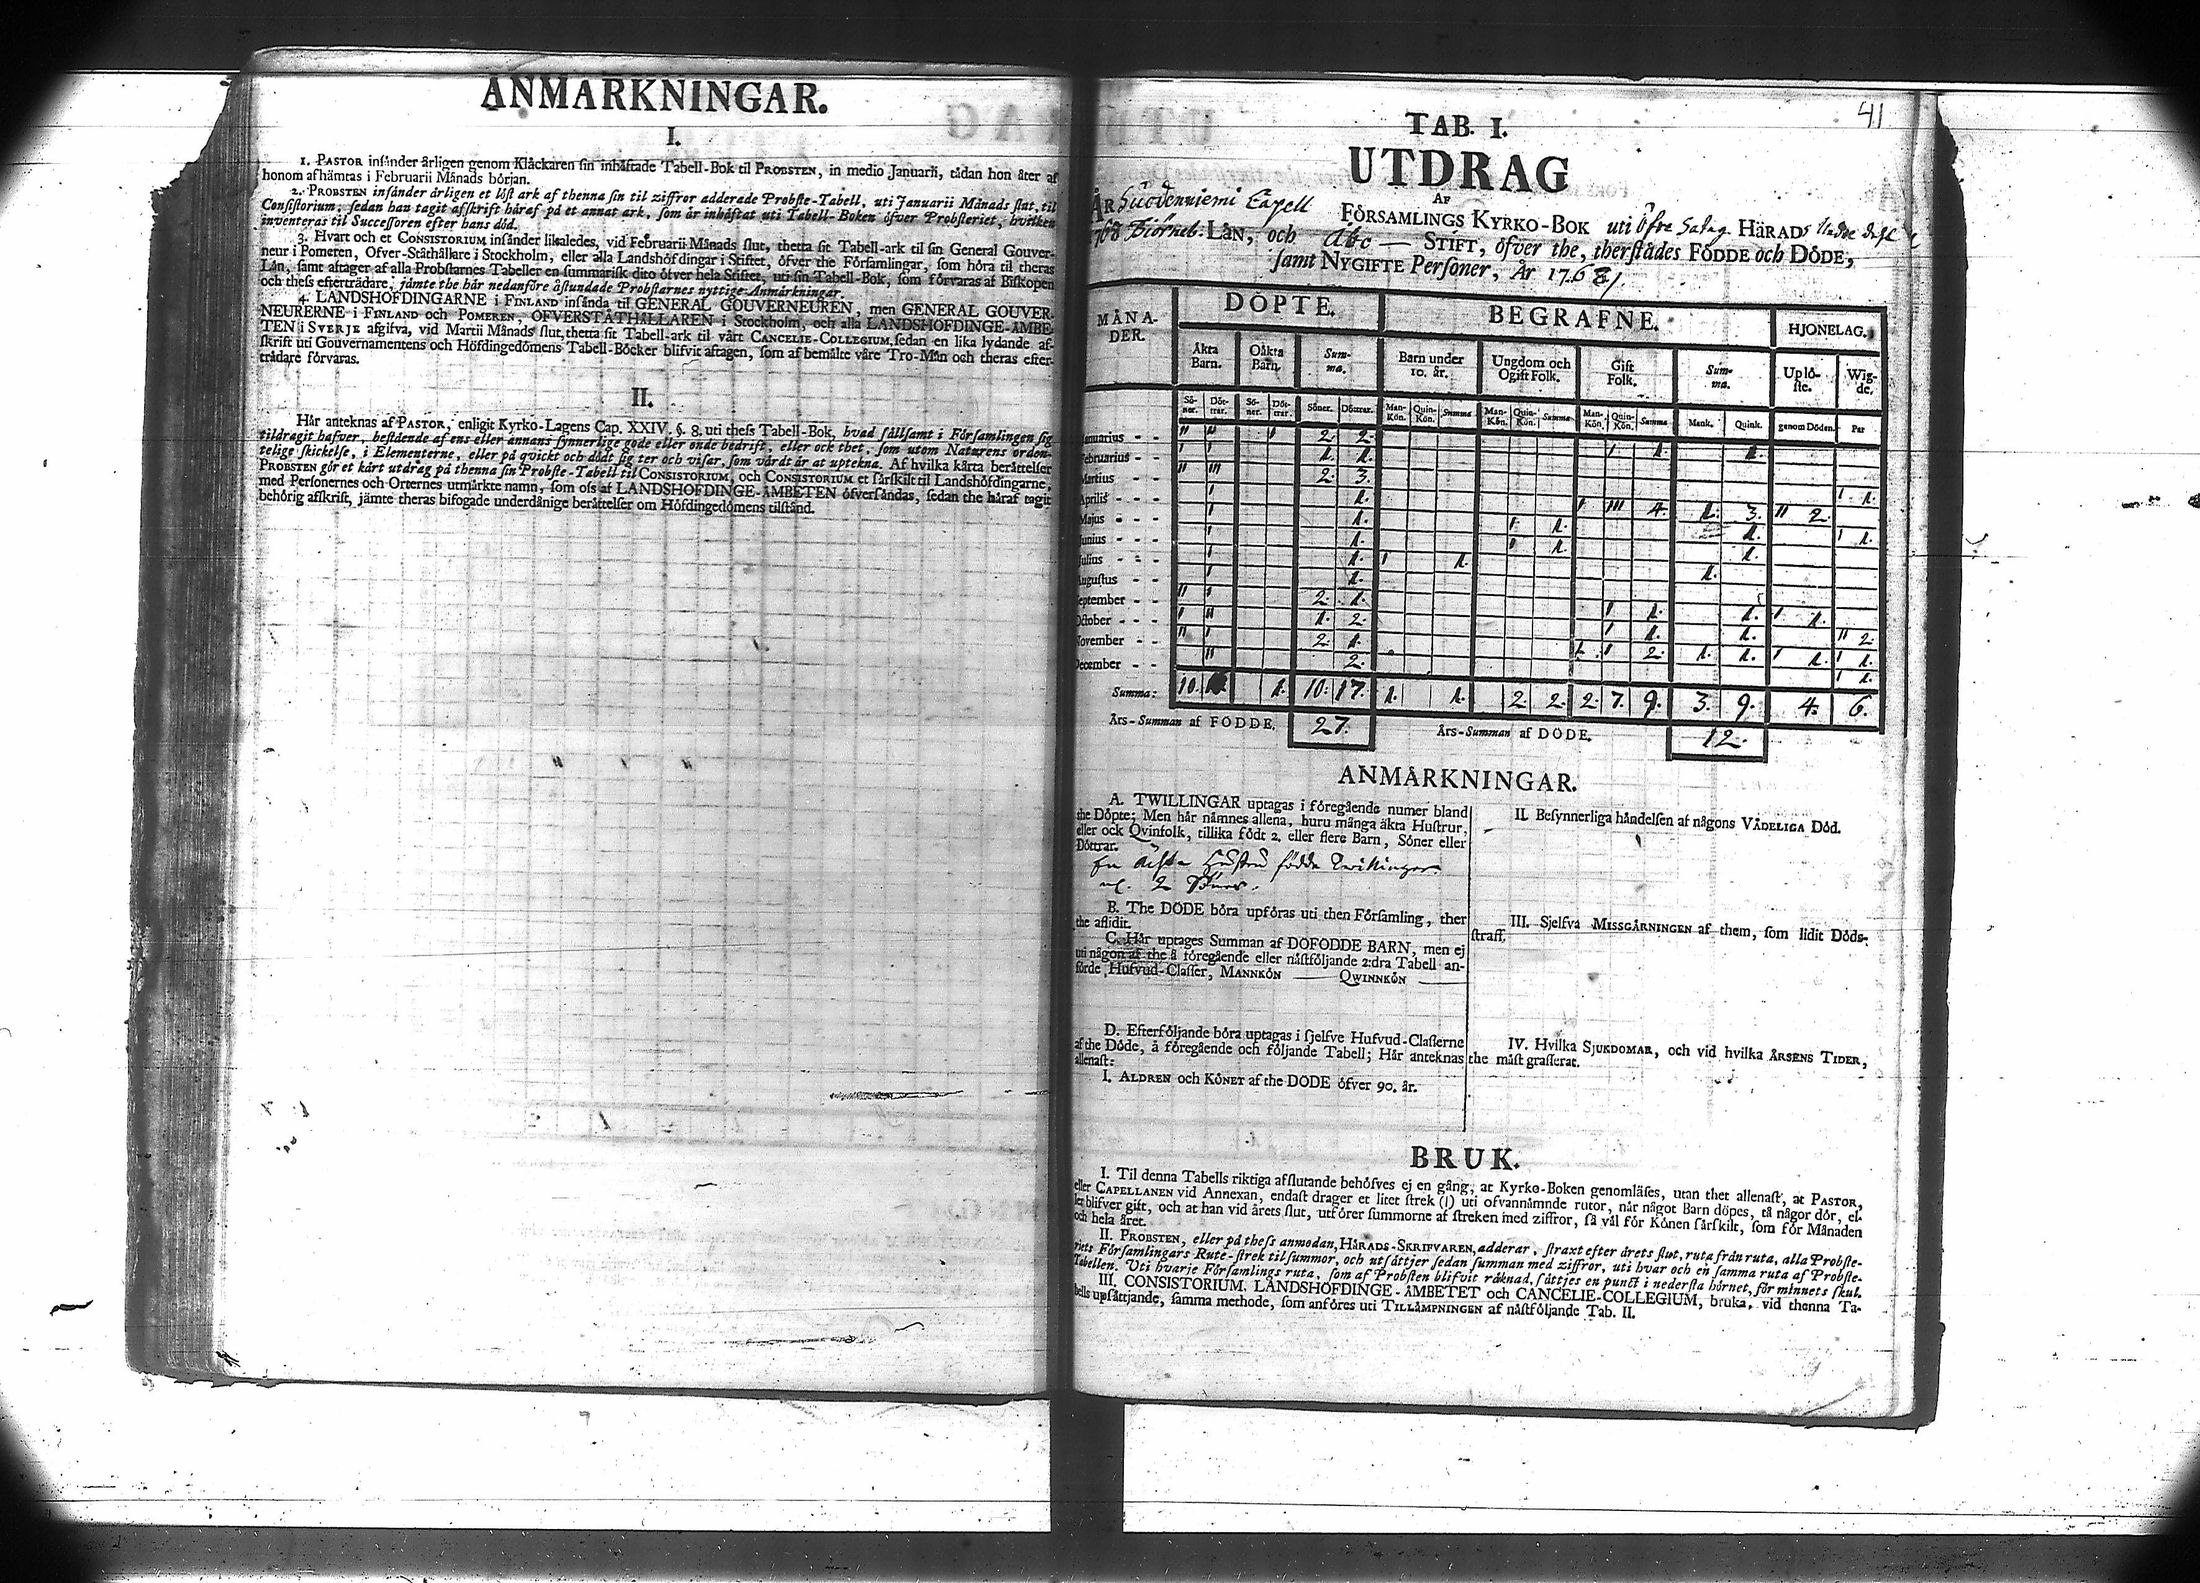 ANMÄRKNINGAR.
I.
1. PASTOR insänder årligen genom Klåckaren sin inhäftade Tabell-Bok til PROBSTEN, in medio Januarii, tådan hon åter af
honom afhämtas i Februarii Månads början.
2. PROBSTEN insänder årligen et löst ark af thenna sin til ziffror adderade Probste-Tabell, uti Januarii Månads slut, til
Consistorium; sedan han tagit afskrift häraf på et annat ark, som är inhäftat uti Tabell-Boken öfver Probsteriet, hvilken
inventeras til Successoren efter hans död.
3. Hvart och et CONSISTORIUM insänder likaledes, vid Februarii Månads slut, thetta sit Tabell-ark til sin General Gouver-
neur i Pomeren, Öfver-Ståthållare i Stockholm, eller alla Landshöfdingar i Stiftet, öfver the Församlingar, som höra til theras
Län, samt aftager af alla Probstarnes Tabeller en summarisk dito öfver hela Stiftet, uti sin Tabell-Bok, som förvaras af Biskopen
och thess efterträdare; jämte the här nedanföre åstundade Probstarnes nyttige Anmärkningar.
4. LANDSHÖFDINGARNE i FINLAND insända til GENERAL GOUVERNEUREN, men GENERAL GOUVER-
NEURERNE i FINLAND och POMEREN, ÖFVERSTÅTHÅLLAREN i Stockholm, och alla LANDSHÖFDINGE-ÄMBE-
TEN i SVERJE afgifva, vid Martii Månads slut, thetta sit Tabell-ark til vårt CANCELIE-COLLEGIUM, sedan en lika lydande af-
skrift uti Gouvernamentens och Höfdingedömens Tabell-Böcker blifvit aftagen, som af bemälte våre Tro-Män och theras efter-
trädare förvaras.
II.
Här anteknas af PASTOR, enligit Kyrko-Lagens Cap. XXIV. §. 8. uti thess Tabell-Bok, hvad sällsamt i Församlingen sig
tildragit hafver, bestående af ens eller annans synnerlige gode eller onde bedrift, eller ock thet, som utom Naturens orden-
telige skickelse, i Elementerne, eller på qvickt och dödt sig ter och visar, som värdt är at uptekna. Af hvilka kårta berättelser
PROBSTEN gör et kårt utdrag på thenna sin Probste-Tabell til CONSISTORIUM, och CONSISTORIUM et särskilt til Landshöfdingarne,
med Personernes och Orternes utmärkte namn, som oss af LANDSHÖFDINGE-ÄMBETEN öfversändas, sedan the häraf tagit
behörig afskrift, jämte theras bifogade underdånige berättelser om Höfdingedömens tilstånd.
41
TAB. I.
UTDRAG
AF
ÅR Suodenniemi Capell FÖRSAMLINGS KYRKO-BOK uti Öfre Satag. HÄRADS
1768 Biörneb: LÄN, och Åbo — STIFT, öfver the, therstädes FÖDDE och DÖDE,
samt NYGIFTE Personer, År 1768/.
MÅNA-
DER. DÖPTE. BEGRAFNE. HJONELAG.
Äkta
Barn. Oäkta
Barn. Sum-
ma. Barn under
10. år. Ungdom och
Ogift Folk. Gift
Folk. Sum-
ma. Uplö-
ste. Wig-
de.
Sö-
ner. Döt-
trar. Sö-
ner. Döt-
trar. Söner. Döttrar. Man-
Kön. Quin-
Kön. Summa Man-
Kön. Quin-
Kön. Summa Man-
Kön. Quin-
Kön. Summa Mank. Quink. genom Döden. Par
Januarius - - II II I 2. 2. I 1. 1.
Februarius - - I I 1. 1.
Martius - - II III 2. 3. I 1.
Aprilis - - - I 1. I III 4. 1. 3. II 2.
Majus - - - I 1. I 1. 1. I 1.
Junius - - - I 1. I 1. 1.
Julius - - - I 1. I 1. 1.
Augustus - - I 1.
September - - II I 2. 1. I 1. 1. I 1.
October - - - I II 1. 2. I 1. 1. II 2.
November - - II I 2. 1. I I 2. 1. 1. I 1. I 1.
December - - II 2. I 1.
Summa: 10. 1. 10. 17. 1. 1. 2. 2. 2. 7. 9. 3. 9. 4. 6.
Års-Summan af FÖDDE. 27. Års-Summan af DÖDE. 12.
ANMÄRKNINGAR.
A. TWILLINGAR uptagas i föregående numer bland
the Döpte; Men här nämnes allena, huru många äkta Hustrur,
eller ock Qvinfolk, tillika födt 2, eller flere Barn, Söner eller
Döttrar.
En ächta Hustru födde Twillingar
nl. 2 Söner.
B. The DÖDE böra upföras uti then Församling, ther
the aflidit.
C. Här uptages Summan af DÖFÖDDE BARN, men ej
uti någon af the å föregående eller nästföljande 2:dra Tabell an-
förde Hufvud-Classer, MANNKÖN —— QWINNKÖN ——
D. Efterföljande böra uptagas i sjelfve Hufvud-Classerne
af the Döde, å föregående och följande Tabell; Här anteknas
allenast:
I. ÅLDREN och KÖNET af the DÖDE öfver 90. år.
II. Besynnerliga händelsen af någons VÅDELIGA Död.
III. Sjelfva MISSGÄRNINGEN af them, som lidit Döds-
straff.
IV. Hvilka SJUKDOMAR, och vid hvilka ÅRSENS TIDER,
the mäst grasserat.
BRUK.
I. Til denna Tabells riktiga afslutande behöfves ej en gång, at Kyrko-Boken genomläses, utan thet allenast, at PASTOR,
eller CAPELLANEN vid Annexan, endast drager et litet strek (I) uti ofvannämnde rutor, när något Barn döpes, tå någor dör, el-
ler blifver gift, och at han vid årets slut, utförer summorne af streken med ziffror, så väl för Könen särskilt, som för Månaden
och hela året.
II. PROBSTEN, eller på thess anmodan, HÄRADS-SKRIFVAREN, adderar, straxt efter årets slut, ruta från ruta, alla Probste-
riets Församlingars Rute-strek til summor, och utsättjer sedan summan med ziffror, uti hvar och en samma ruta af Probste-
Tabellen. Uti hvarje Församlings ruta, som af Probsten blifvit räknad, sättjes en punct i nedersta hörnet, för minnets skul.
III. CONSISTORIUM, LANDSHÖFDINGE-ÄMBETET och CANCELIE-COLLEGIUM, bruka, vid thenna Ta-
bells upsättjande, samma methode, som anföres uti TILLÄMPNINGEN af nästföljande Tab. II.